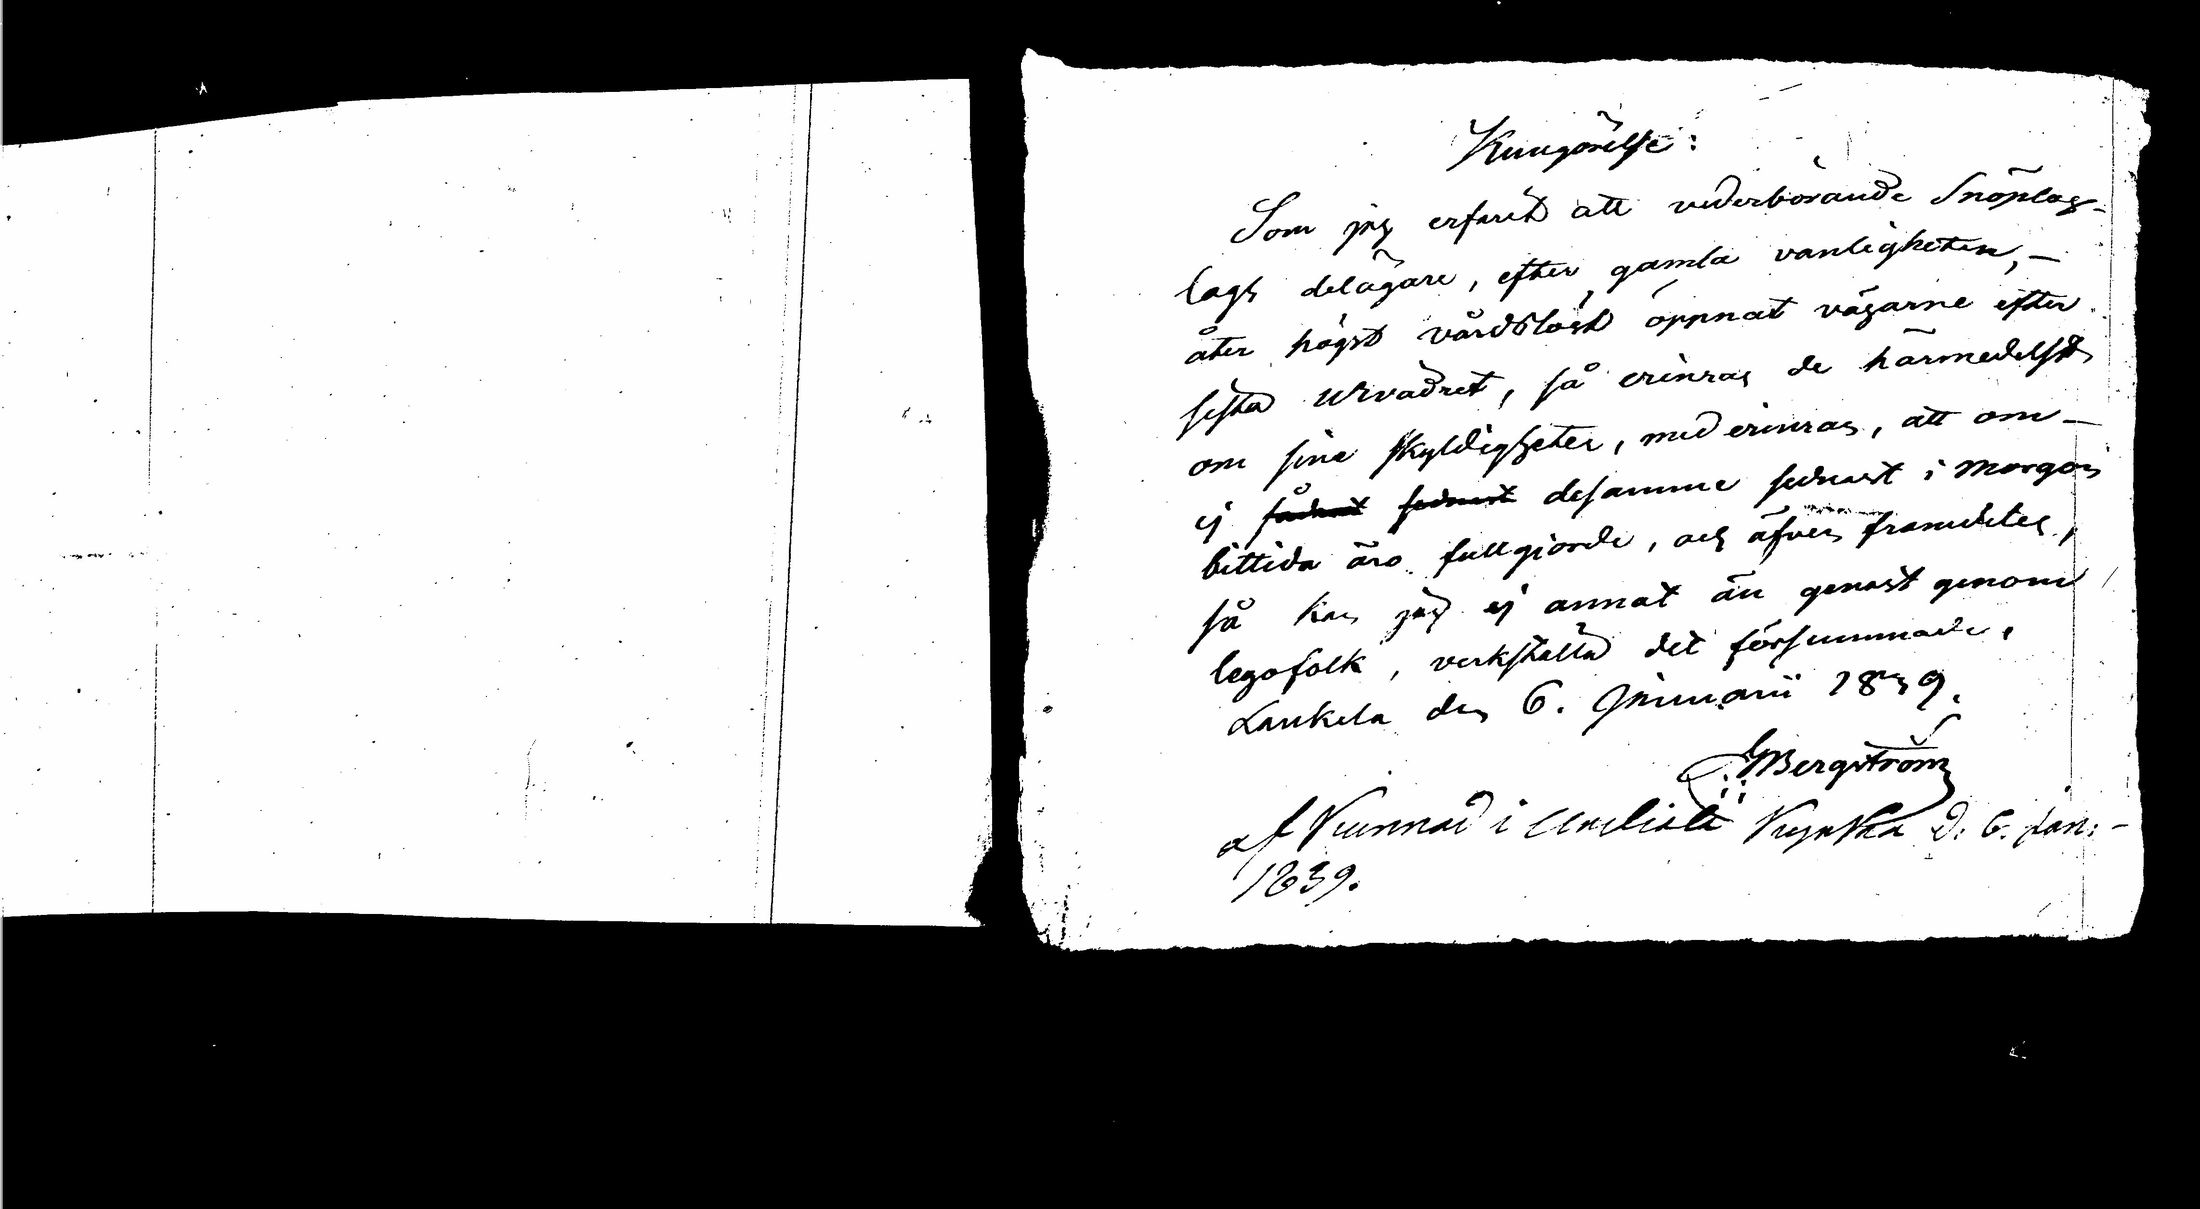 Kungörelse:
Som jag erfarit att vederbörande Snöplog-
lags delägare, efter gamla vanligheten, –
åter högst vårdslöst öppnat vägarne efter
sista urvädret, så erinras de härmedelst
om sina skyldigheter, med erinran, att om –
ej desamme sednast i morgon
bittida äro fullgjorde, och äfven framdeles,
så kan jag ej annat än genast genom
legofolk, verkställa det försummade,
Lankila den 6. Januarii 1839.
Bergström
af Kunnad i Kyrka d. 6. Jan: –
1839.